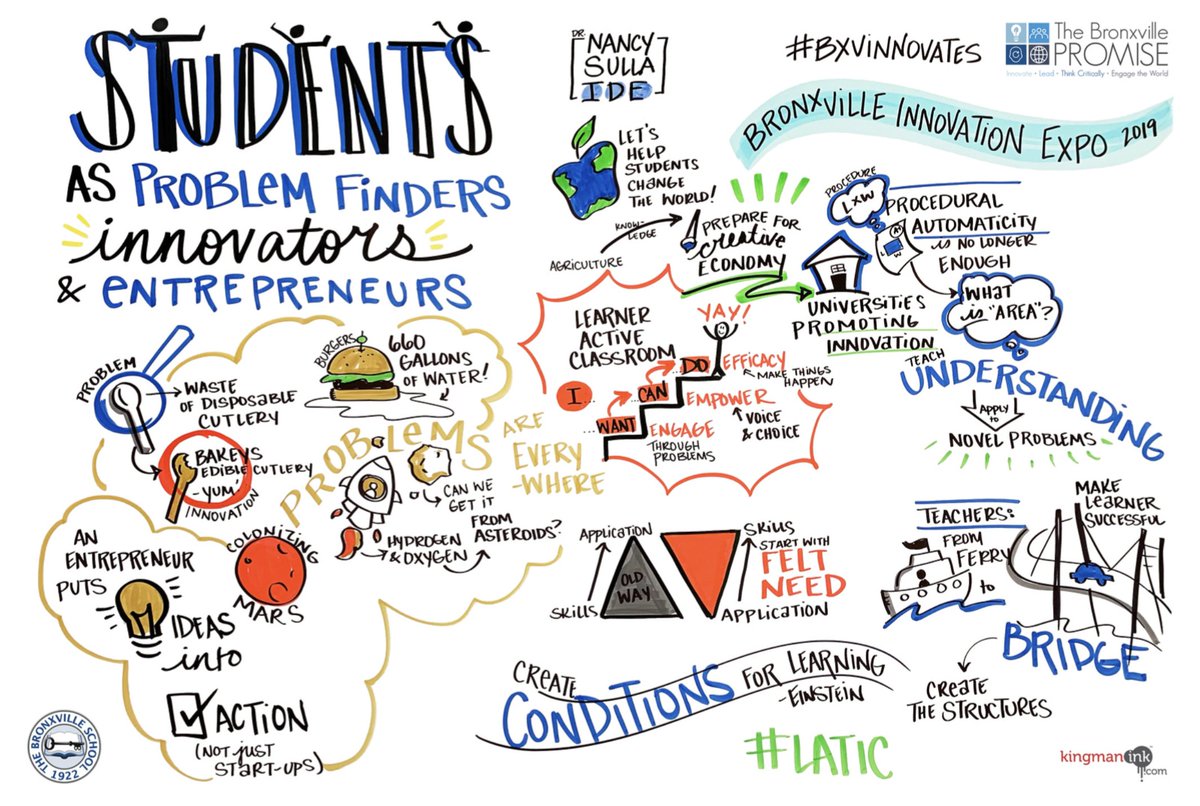 STUDENTS
AS PROBLEM FINDERS
innovators
& ENTREPRENEURS
DR.
NANCY
SULLA
IDE
#BXVINNOVATES
The Bronxville
PROMISE
Innovate • Lead • Think Critically • Engage the World
BRONXVILLE INNOVATION EXPO 2019
LET'S
HELP
STUDENTS
CHANGE
THE WORLD!
AGRICULTURE
KNOW-
LEDGE
PREPARE FOR
creative
ECONOMY
UNIVERSITIES
PROMOTING
INNOVATION
PROCEDURE
LXW
PROCEDURAL
AUTOMATICITY
is NO LONGER
ENOUGH
A+
L
W
WHAT
is "AREA"?
TEACH
UNDERSTANDING
APPLY
to
NOVEL PROBLEMS
PROBLEM
WASTE
OF DISPOSABLE
CUTLERY
BAKEYS
EDIBLE CUTLERY
-YUM'
INNOVATION
BURGERS
660
GALLONS
OF WATER!
PROBLEMS
ARE
EVERY
-WHERE
CAN WE
GET IT
FROM
ASTEROIDS?
HYDROGEN
& OXYGEN
COLONIZING
MARS
AN
ENTREPRENEUR
PUTS
IDEAS
into
ACTION
(NOT just
START-UPS)
LEARNER
ACTIVE
CLASSROOM
YAY!
I...
...WANT
...CAN
...DO
EFFICACY
MAKE THINGS
HAPPEN
EMPOWER
VOICE
& CHOICE
ENGAGE
THROUGH
PROBLEMS
APPLICATION
SKILLS
OLD
WAY
SKILLS
START WITH
FELT
NEED
APPLICATION
TEACHERS:
FROM
FERRY
to
MAKE
LEARNER
SUCCESSFUL
BRIDGE
CREATE
THE STRUCTURES
CREATE
CONDITIONS
FOR LEARNING
-EINSTEIN
#LATIC
THE BRONXVILLE SCHOOL
1922
kingmanink
.com